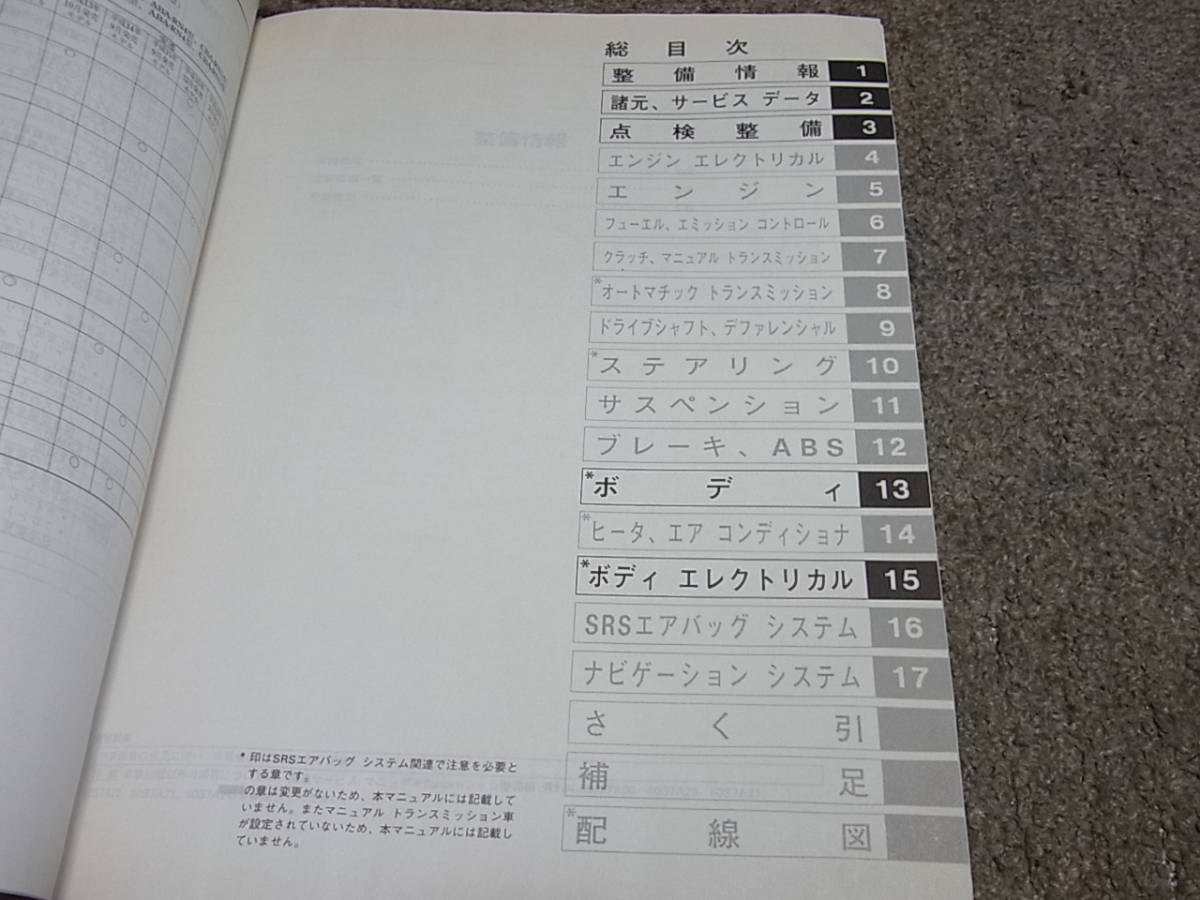 総目次
整備情報 1
諸元、サービス データ 2
点検整備 3
エンジン エレクトリカル 4
エンジン 5
フューエル、エミッション コントロール 6
クラッチ、マニュアル トランスミッション 7
*オートマチック トランスミッション 8
ドライブシャフト、デファレンシャル 9
*ステアリング 10
サスペンション 11
ブレーキ、ABS 12
*ボディ 13
*ヒータ、エア コンディショナ 14
*ボディ エレクトリカル 15
SRSエアバッグ システム 16
ナビゲーション システム 17
さく引
補足
*配線図
* 印はSRSエアバッグ システム関連で注意を必要と
する章です。
の章は変更がないため、本マニュアルには記載して
いません。またマニュアル トランスミッション車
が設定されていないため、本マニュアルには記載し
ていません。